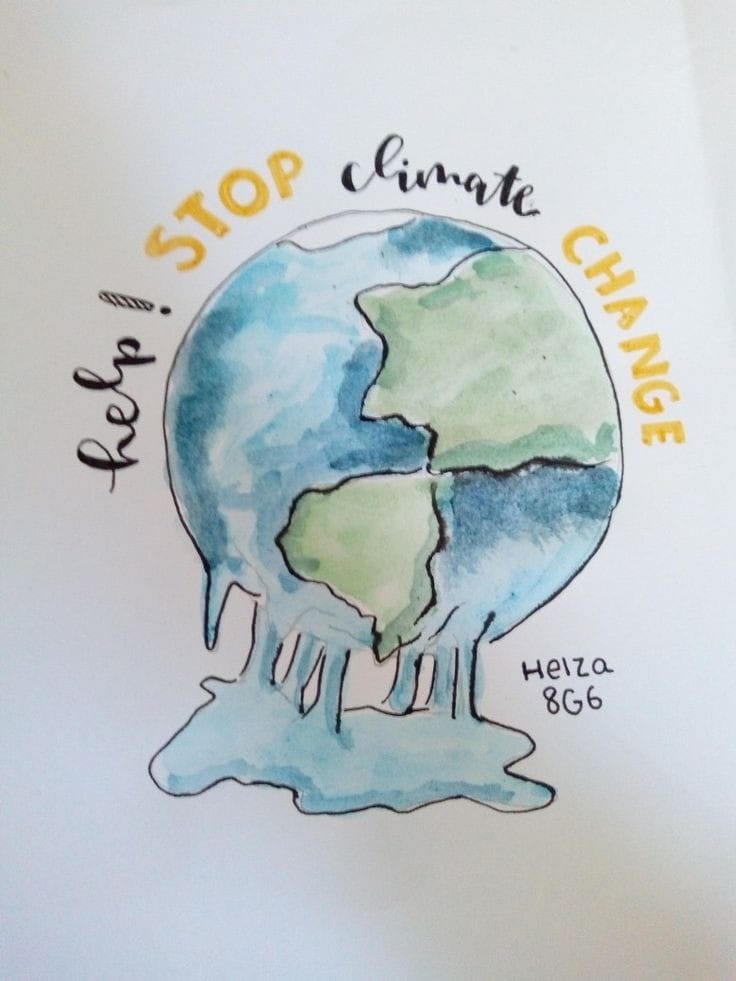 help! STOP climate CHANGE
Helza
8G6